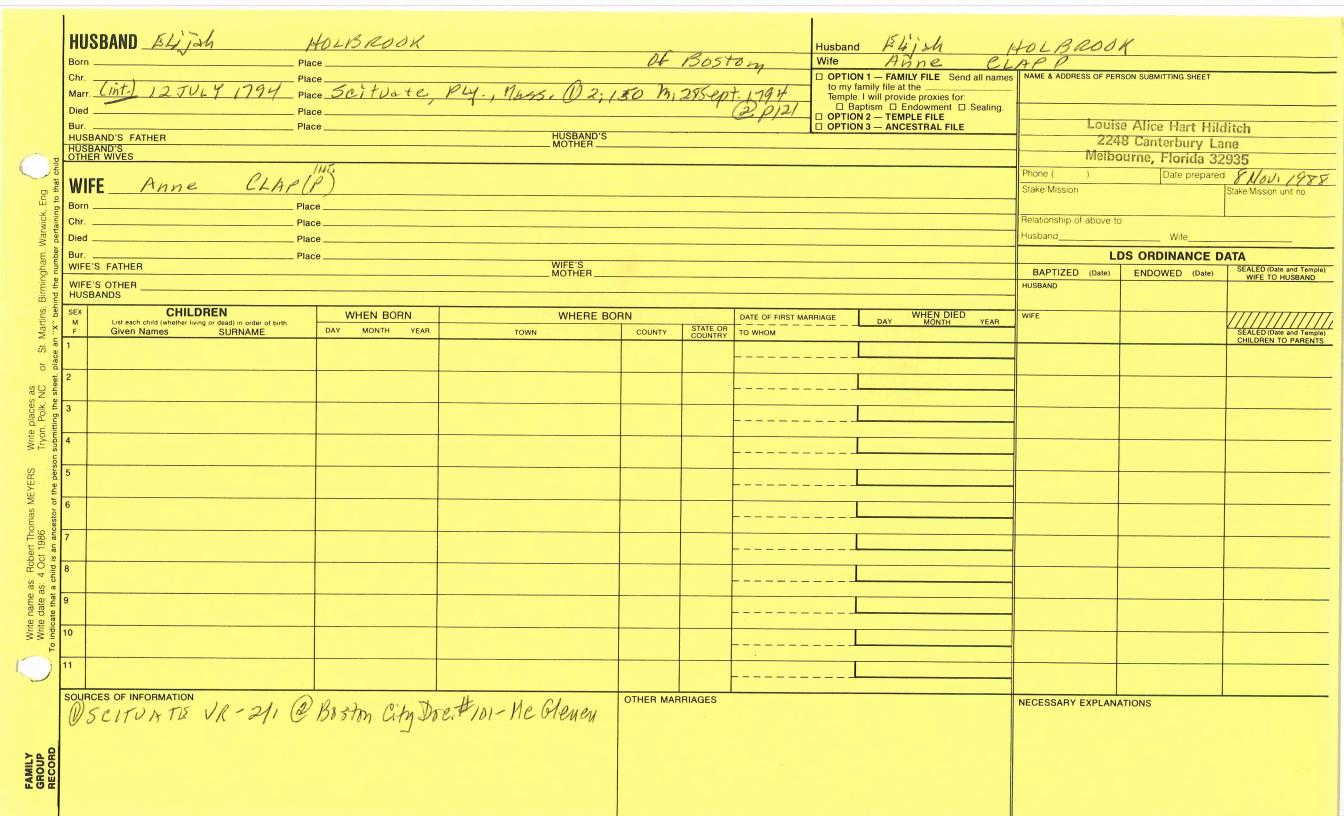 HUSBAND Elijah HOLBROOK
Born Place of Boston
Chr. Place
Marr. (int.) 12 JULY 1794 Place Scituate, Ply., Mass. ① 2;150 m; 28 Sept. 1794
Died Place ② p121
Bur. Place
HUSBAND'S FATHER HUSBAND'S MOTHER
HUSBAND'S OTHER WIVES
Husband Elijah HOLBROOK
Wife Anne CLAPP
☐ OPTION 1 — FAMILY FILE Send all names
to my family file at the
Temple. I will provide proxies for:
☐ Baptism ☐ Endowment ☐ Sealing.
☐ OPTION 2 — TEMPLE FILE
☐ OPTION 3 — ANCESTRAL FILE
NAME & ADDRESS OF PERSON SUBMITTING SHEET
Louise Alice Hart Hilditch
2248 Canterbury Lane
Melbourne, Florida 32935
Phone ( ) Date prepared 8 Nov. 1988
Stake/Mission Stake/Mission unit no.
Relationship of above to
Husband Wife
WIFE Anne CLAP(P) ING
Born Place
Chr. Place
Died Place
Bur. Place
WIFE'S FATHER WIFE'S MOTHER
WIFE'S OTHER HUSBANDS
LDS ORDINANCE DATA
BAPTIZED (Date) ENDOWED (Date) SEALED (Date and Temple) WIFE TO HUSBAND
HUSBAND
WIFE
SEALED (Date and Temple) CHILDREN TO PARENTS
SEX M F
CHILDREN
List each child (whether living or dead) in order of birth.
Given Names SURNAME
WHEN BORN
DAY MONTH YEAR
WHERE BORN
TOWN COUNTY STATE OR COUNTRY
DATE OF FIRST MARRIAGE
TO WHOM
WHEN DIED
DAY MONTH YEAR
1
2
3
4
5
6
7
8
9
10
11
SOURCES OF INFORMATION
① SCITUATE VR-2/1 ② Boston City Doc. #101-McGlenen
OTHER MARRIAGES
NECESSARY EXPLANATIONS
Write name as: Robert Thomas MEYERS Write places as: Tryon, Polk, NC or St. Martins, Birmingham, Warwick, Eng
Write date as: 4 Oct 1986
To indicate that a child is an ancestor of the person submitting the sheet, place an "X" behind the number pertaining to that child
FAMILY GROUP RECORD